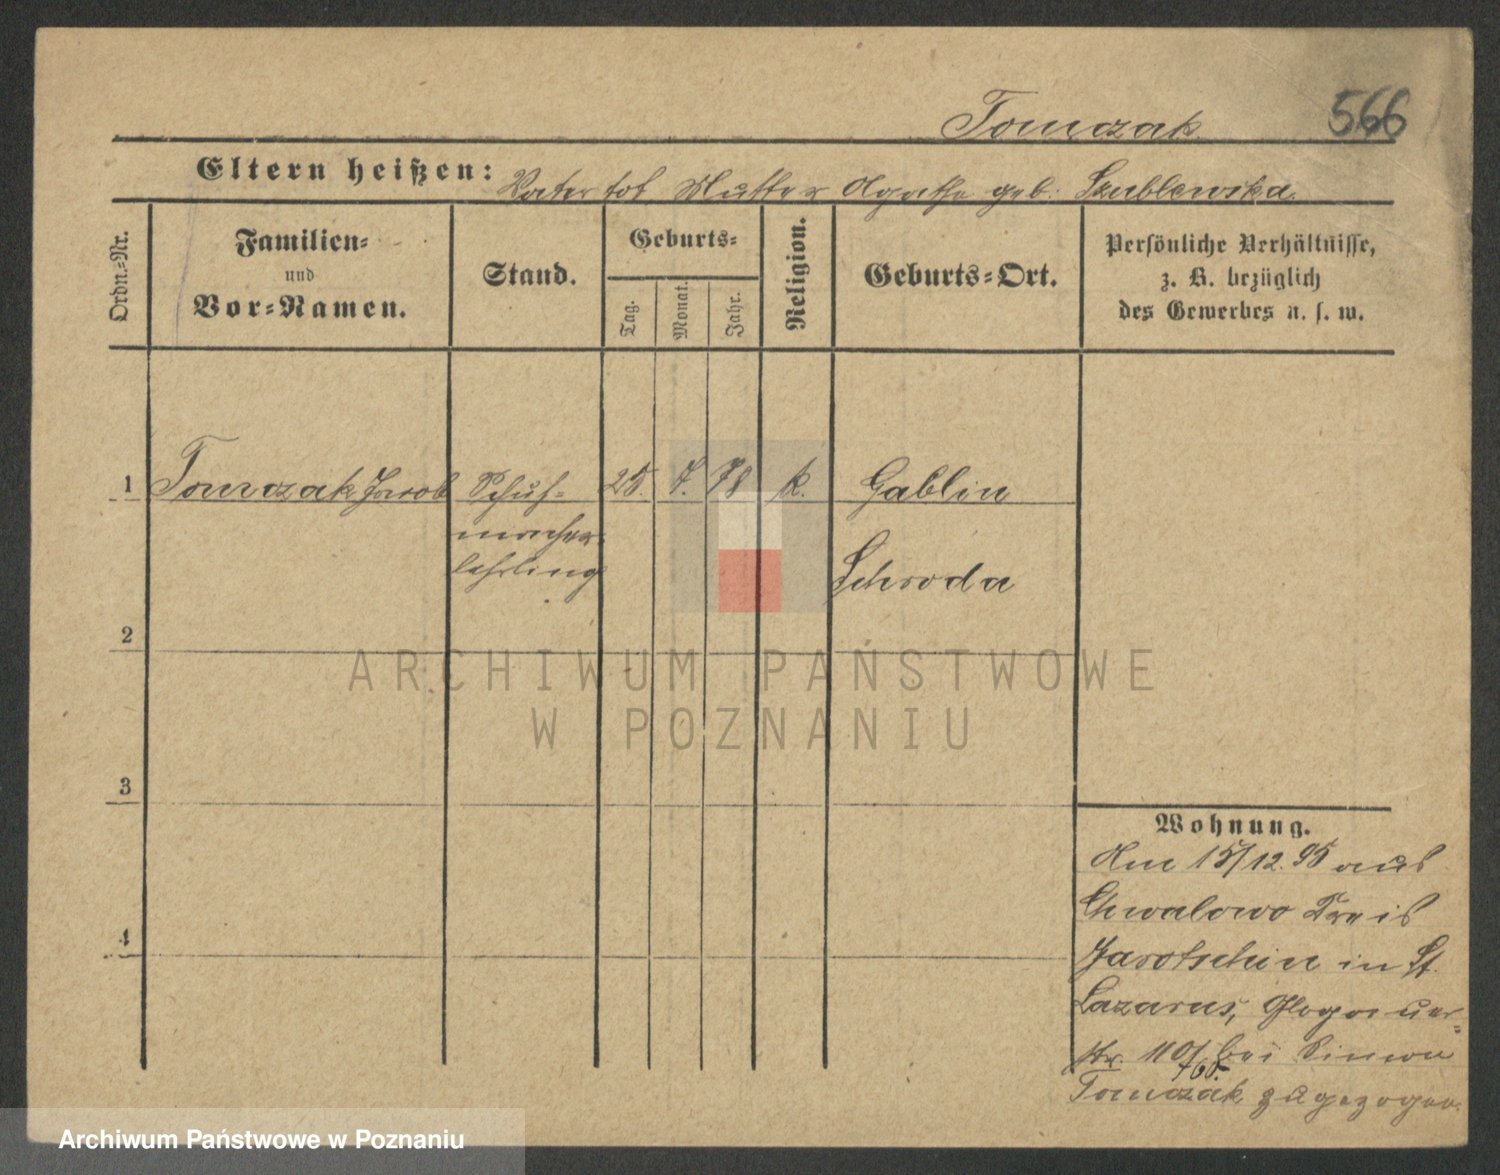 Tomczak 566
Eltern heißen: Vater tot Mutter Agathe geb. Szublewska.
Ordn.-Nr.
Familien-
und
Vor-Namen.
Stand.
Geburts-
Tag.
Monat.
Jahr.
Religion.
Geburts-Ort.
Persönliche Verhältnisse,
z. B. bezüglich
des Gewerbes u. s. w.
1 Tomczak Jacob Schuh- 25. 7. 78 k. Gablin
macher
lehrling Schroda
2
ARCHIWUM PAŃSTWOWE
W POZNANIU
3
4
Wohnung.
Am 15/12. 95 aus
Chwalowo Kreis
Jarotschin in St.
Lazarus, Glogauer-
str. 110/ bei Simon
Tomczak zugezogen.
Archiwum Państwowe w Poznaniu